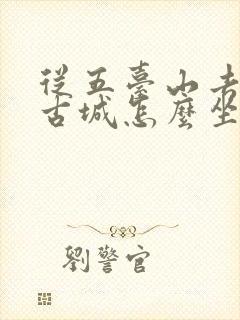 從五臺山去
古城怎麼坐
劉警官